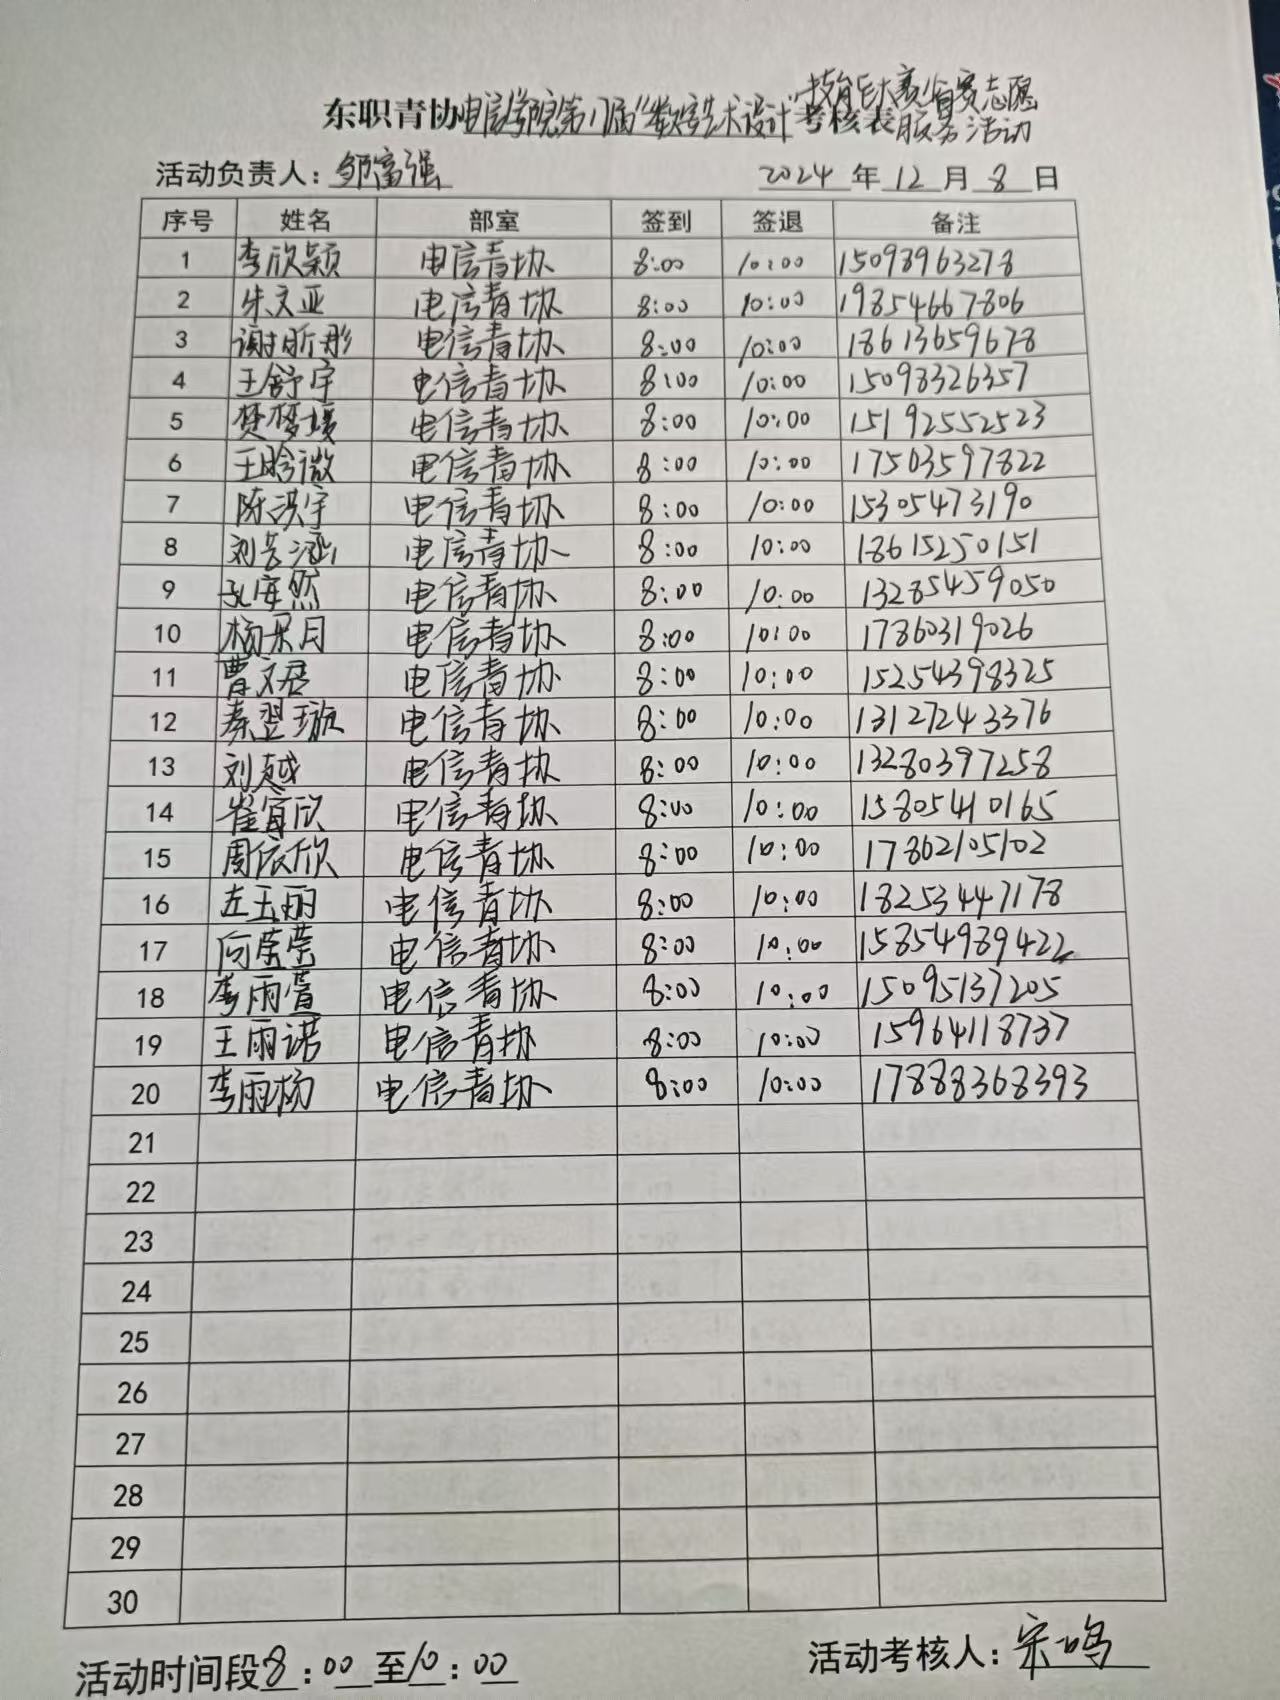 技能大赛省赛志愿
东职青协电信学院第八届"数字艺术设计"考核表服务活动
活动负责人：邹富强 2024 年 12 月 8 日
序号 姓名 部室 签到 签退 备注
1 李欣颖 电信青协 8:00 10:00 15098963278
2 朱文亚 电信青协 8:00 10:00 19854667806
3 谢昕彤 电信青协 8:00 10:00 18613659678
4 王舒宇 电信青协 8:00 10:00 15098326357
5 樊梦媛 电信青协 8:00 10:00 15192552523
6 王晗微 电信青协 8:00 10:00 17503597822
7 陈洪宇 电信青协 8:00 10:00 15305473190
8 刘芸涵 电信青协 8:00 10:00 18615250151
9 孔安然 电信青协 8:00 10:00 13285459050
10 杨采月 电信青协 8:00 10:00 17860319026
11 曹文君 电信青协 8:00 10:00 15254398325
12 秦翌璇 电信青协 8:00 10:00 13127243376
13 刘越 电信青协 8:00 10:00 13280397258
14 崔宜欣 电信青协 8:00 10:00 15805410165
15 周依欣 电信青协 8:00 10:00 17862105102
16 左玉丽 电信青协 8:00 10:00 18253447178
17 向莹莹 电信青协 8:00 10:00 15854989422
18 李雨萱 电信青协 8:00 10:00 15095137205
19 王雨诺 电信青协 8:00 10:00 15964118737
20 李雨杨 电信青协 8:00 10:00 17888368393
21
22
23
24
25
26
27
28
29
30
活动时间段8:00至10:00 活动考核人：宋鸣